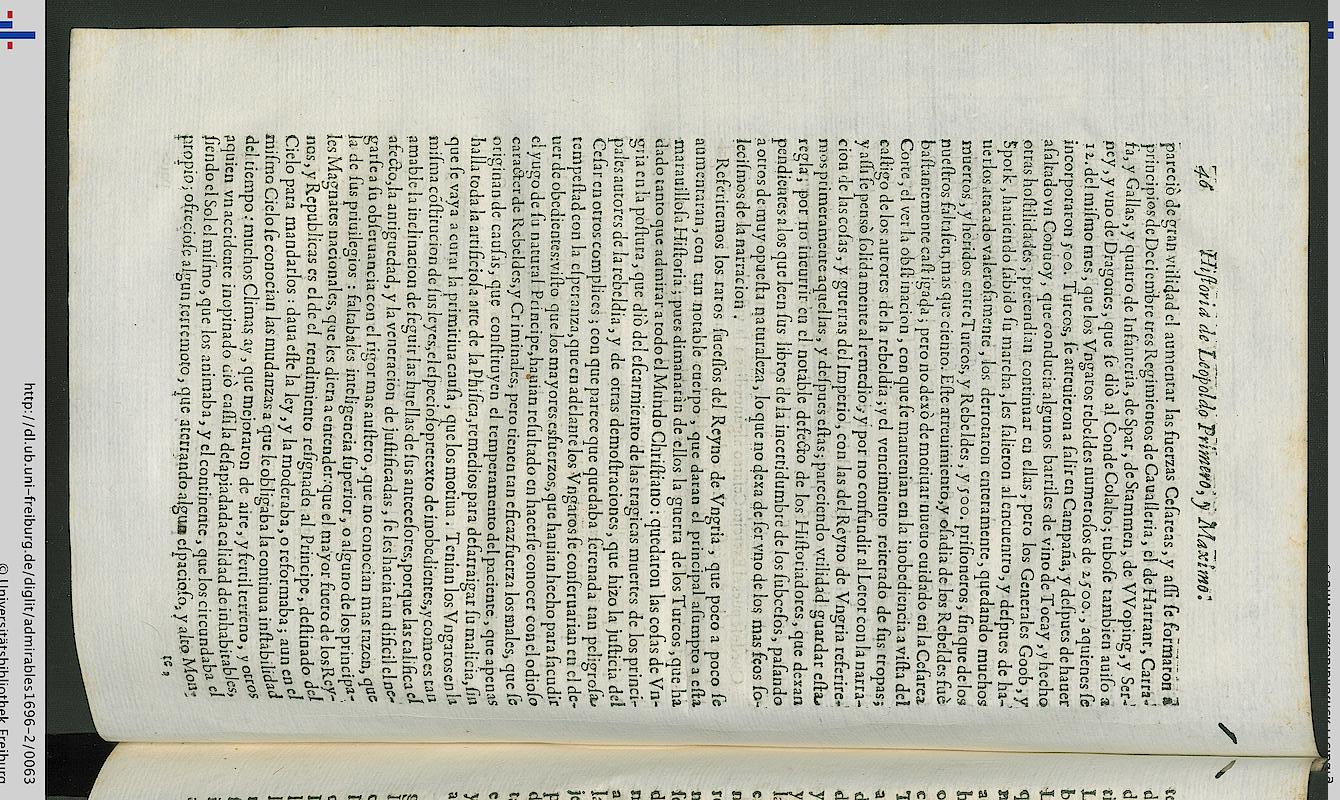 46 Historia de Leopoldo Primero, y Maximo
pareciò de gran vtilidad el aumentar las fuerzas Cesareas, y assi se formaron à
principios de Deciembre tres Regimientos de Caualleria, el de Harrant, Carra-
fa, y Gallas, y quatro de Infanteria, de Spar, de Stammen, de VVoping, y Ser-
ney, y vno de Dragones, que se diò al Conde Colalto; tubose tambien auiso a
12. del mismo mes, que los Vngaros rebeldes numerosos de 2,700., aquienes se
incorporaron 500. Turcos, se atreuieron a salir en Campaña, y despues de hauer
asaltado vn Conuoy, que conducia algunos barriles de vino de Tocay, y hecho
otras hostilidades, pretendian continuar en ellas, pero los Generales Goob, y
Spork, hauiendo sabido su marcha, les salieron al encuentro, y despues de ha-
uerlos atacado valerosamente, los derrotaron enteramente, quedando muchos
muertos, y heridos entre Turcos, y Rebeldes, y 500. prisioneros, sin que de los
nuestros faltasen, mas que ciento. Este atreuimiento, y osadia de los Rebeldes fuè
bastantemente castigada; pero no dexò de motiuar nueuo cuidado en la Cesarea
Corte, el ver la obstinacion, con que se mantenian en la inobediencia a vista del
castigo de los autores de la rebeldia, y el vencimiento reiterado de sus tropas;
y assi se pensò solidamente al remedio; y por no confundir al Letor con la narra-
cion de las cosas, y guerras del Imperio, con las del Reyno de Vngria referire-
mos primeramente aquellas, y despues estas; pareciendo vtilidad guardar esta
regla; por no incurrir en el notable defecto de los Historiadores, que dexan
pendientes a los que leen sus libros de la incertidumbre de los subcesos, paleando
a otros de muy opuesta naturaleza, lo que no dexa de ser vno de los mas feos so-
lecismos de la narracion.
Referiremos los raros sucessos del Reyno de Vngria, que poco a poco se
aumentaran, con tan notable cuerpo, que daran el principal assumpto a esta
marauillosa Historia; pues dimanaràn de ellos la guerra de los Turcos, que ha
dado tanto que admirar a todo el Mundo Christiano: quedaron las cosas de Vn-
gria en la postura, que diò del escarmiento de las tragicas muertes de los princi-
pales autores de la rebeldia, y de otras demostraciones, que hizo la justicia del
Cesar en otros complices; con que parece que quedaba serenada tan peligrosa
tempestad con la esperanza, que en adelante los Vngaros se conseruarian en el de-
uer de obedientes: visto que los mayores esfuerzos, que hauian hecho para sacudir
el yugo de su natural Principe, hauian resultado en hacerse conocer con el odioso
caracter de Rebeldes, y Criminales, pero tienen tan eficaz fuerza los males, que se
originan de causas, que constituyen el temperamento del paciente, que apenas
halla toda la artificiosa arte de la Phisica, remedios para desraigar su malicia, sin
que se vaya a curar la primitiua causa, que los motiua. Tenian los Vngaros en la
misma cõstitucion de sus leyes, el especioso pretexto de inobedientes, y como es tan
amable la inclinacion de seguir las huellas de sus antecesores, porque las califica, el
afecto, la antiguedad, y la veneracion de justificadas, se les hacia tan dificil el ne-
garse a su obseruancia con el rigor mas austero, que no conocian mas razon, que
la de sus priuilegios: faltabales inteligencia superior, o alguno de los principa-
les Magnates nacionales, que les diera a entender: que el mayor fuero de los Rey-
nos, y Republicas es el de el rendimiento resignado al Principe, destinado del
Cielo para mandarlos: daua este la ley, y la moderaba, o reformaba; aun en el
mismo Cielo se conocian las mudanzas: a que le obligaba la continua instabilidad
del tiempo: muchos Climas ay, que mejoraron de aire, y fertil terreno, y otros
aquien vn accidente inopinado diò cassi la desapiadada calidad de inhabitables,
siendo el Sol el mismo, que los animaba, y el continente, que los circundaba el
propio; ofreciose algun terremoto, que aterrando algun espacioso, y alto Mon-
te,
http://dl.ub.uni-freiburg.de/diglit/admirables1696-2/0063
© Universitätsbibliothek Freiburg